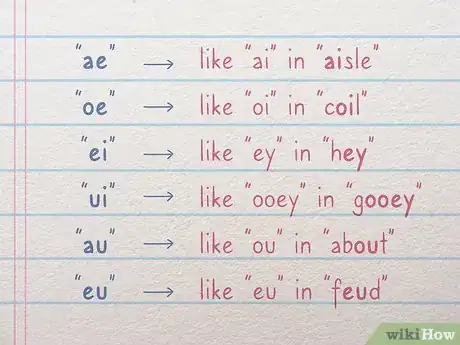 "ae" → like "ai" in "aisle"
"oe" → like "oi" in "coil"
"ei" → like "ey" in "hey"
"ui" → like "ooey" in "gooey"
"au" → like "ou" in "about"
"eu" → like "eu" in "feud"
wikiHow